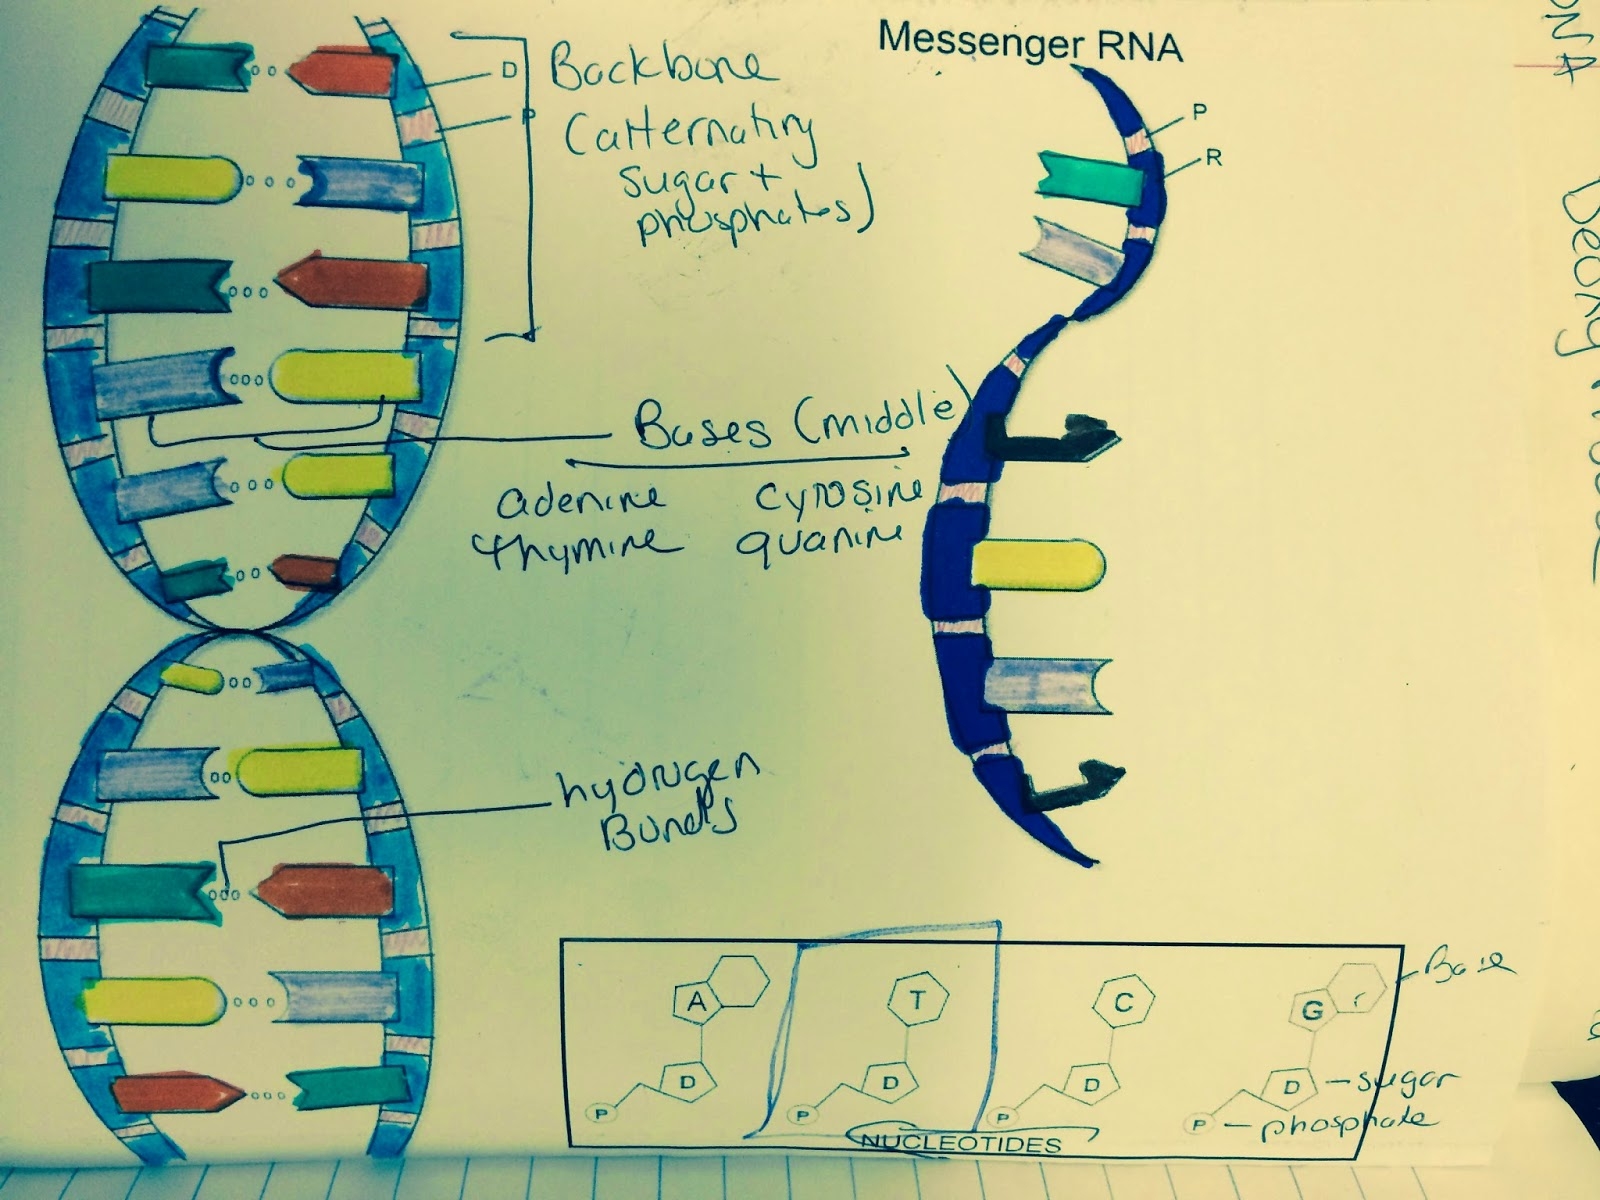 Messenger RNA
D
P
Backbone
(alternating
sugar +
phosphates)
P
R
Bases (middle)
adenine cytosine
thymine guanine
hydrogen
Bonds
A T C G
Base
D D D D - sugar
P P P P - phosphate
NUCLEOTIDES
DNA